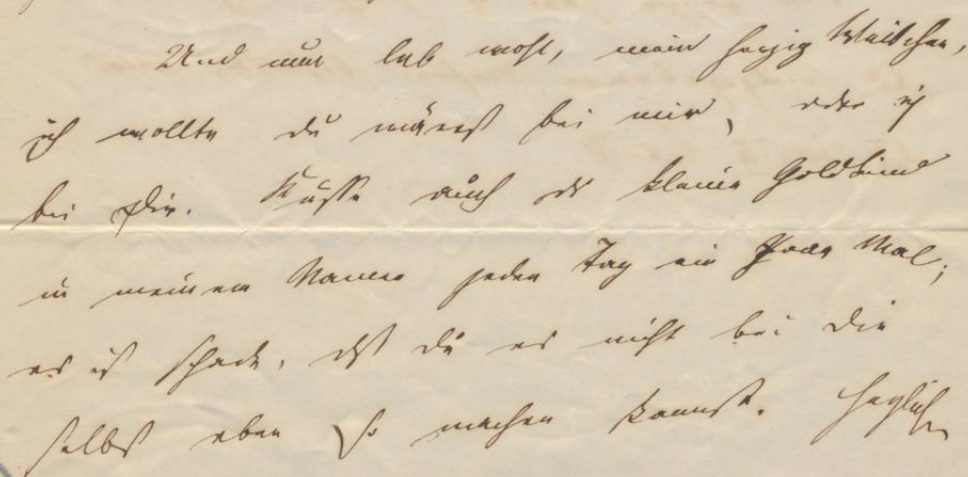 Und nun leb wohl, mein herzig Weibchen,
ich wollte du wärest bei mir, oder ich
bei Dir. Küsse auch ds kleine Goldkind
in meinem Namen jeden Tag ein Paar Mal;
es ist schade, dß du es nicht bei dir
selbst eben so machen kannst. Herzlichen